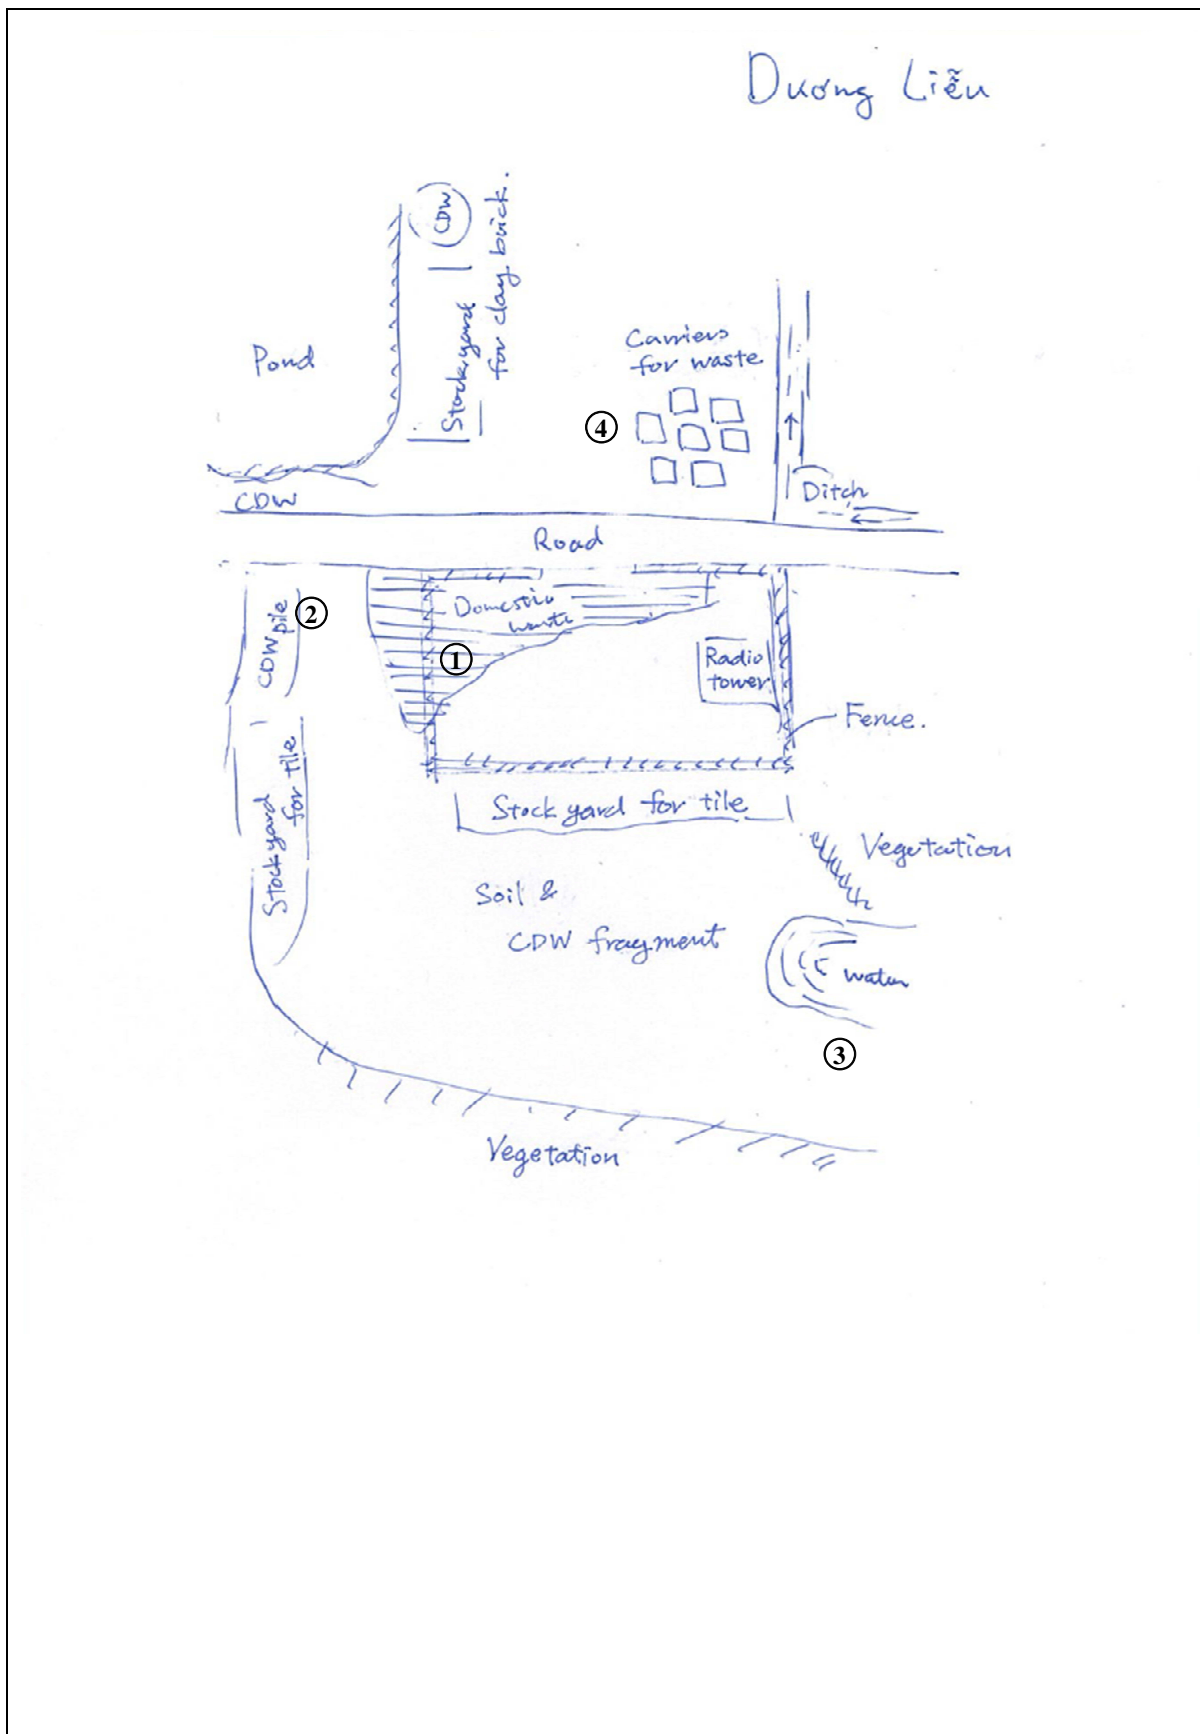 Dương Liễu
CDW
Stockyard
for clay brick.
Pond
Carriers
for waste
④
CDW
Ditch
Road
Domestic
waste
②
CDW pile
①
Radio
tower
Fence.
Stockyard
for tile
Stock yard for tile
Vegetation
Soil &
CDW fragment
water
③
Vegetation